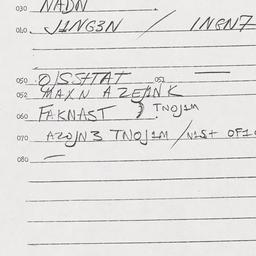 030 NADN
040 J1NG3N / INGN7
050 OJSSHTAT 051
052 MAXN AZE/ANK
060 FAKNAST } TNOJ1M
070 AZOJN3 TNOJ1M /N1S+ OF1
080 —